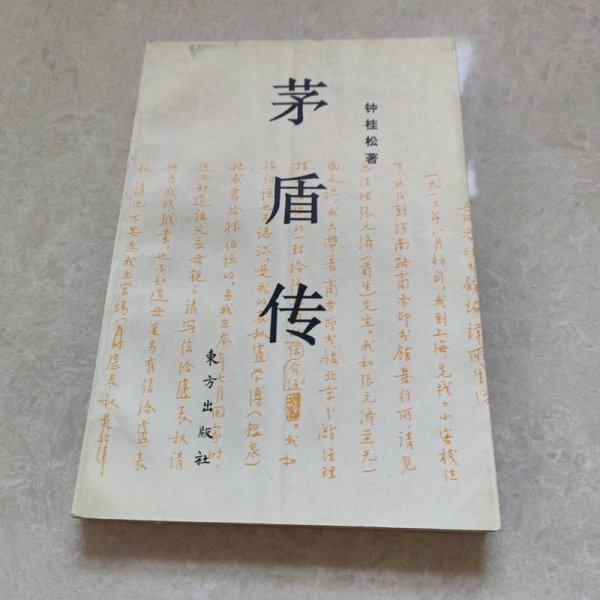 茅盾传
钟桂松著
一九一六年八月初旬,我到上海先找个小客栈住
下,然后到河南路商务印书馆发行所,请见
总经理张元济(菊生)先生。我和张元济并无一
面之识,我只带着商务印书馆北京分馆经理
的一封给 介信。我和
孙伯恒也不认识,是我的表叔卢学溥(鉴泉)
把我荐给孙伯恒的。当我在今年七月回家时,
还不知道祖父应母亲之请写信给卢表叔请
他为我找职业,也不知道母亲另有信给卢表
叔请他不要为我在官场 卢表叔
東方出版社